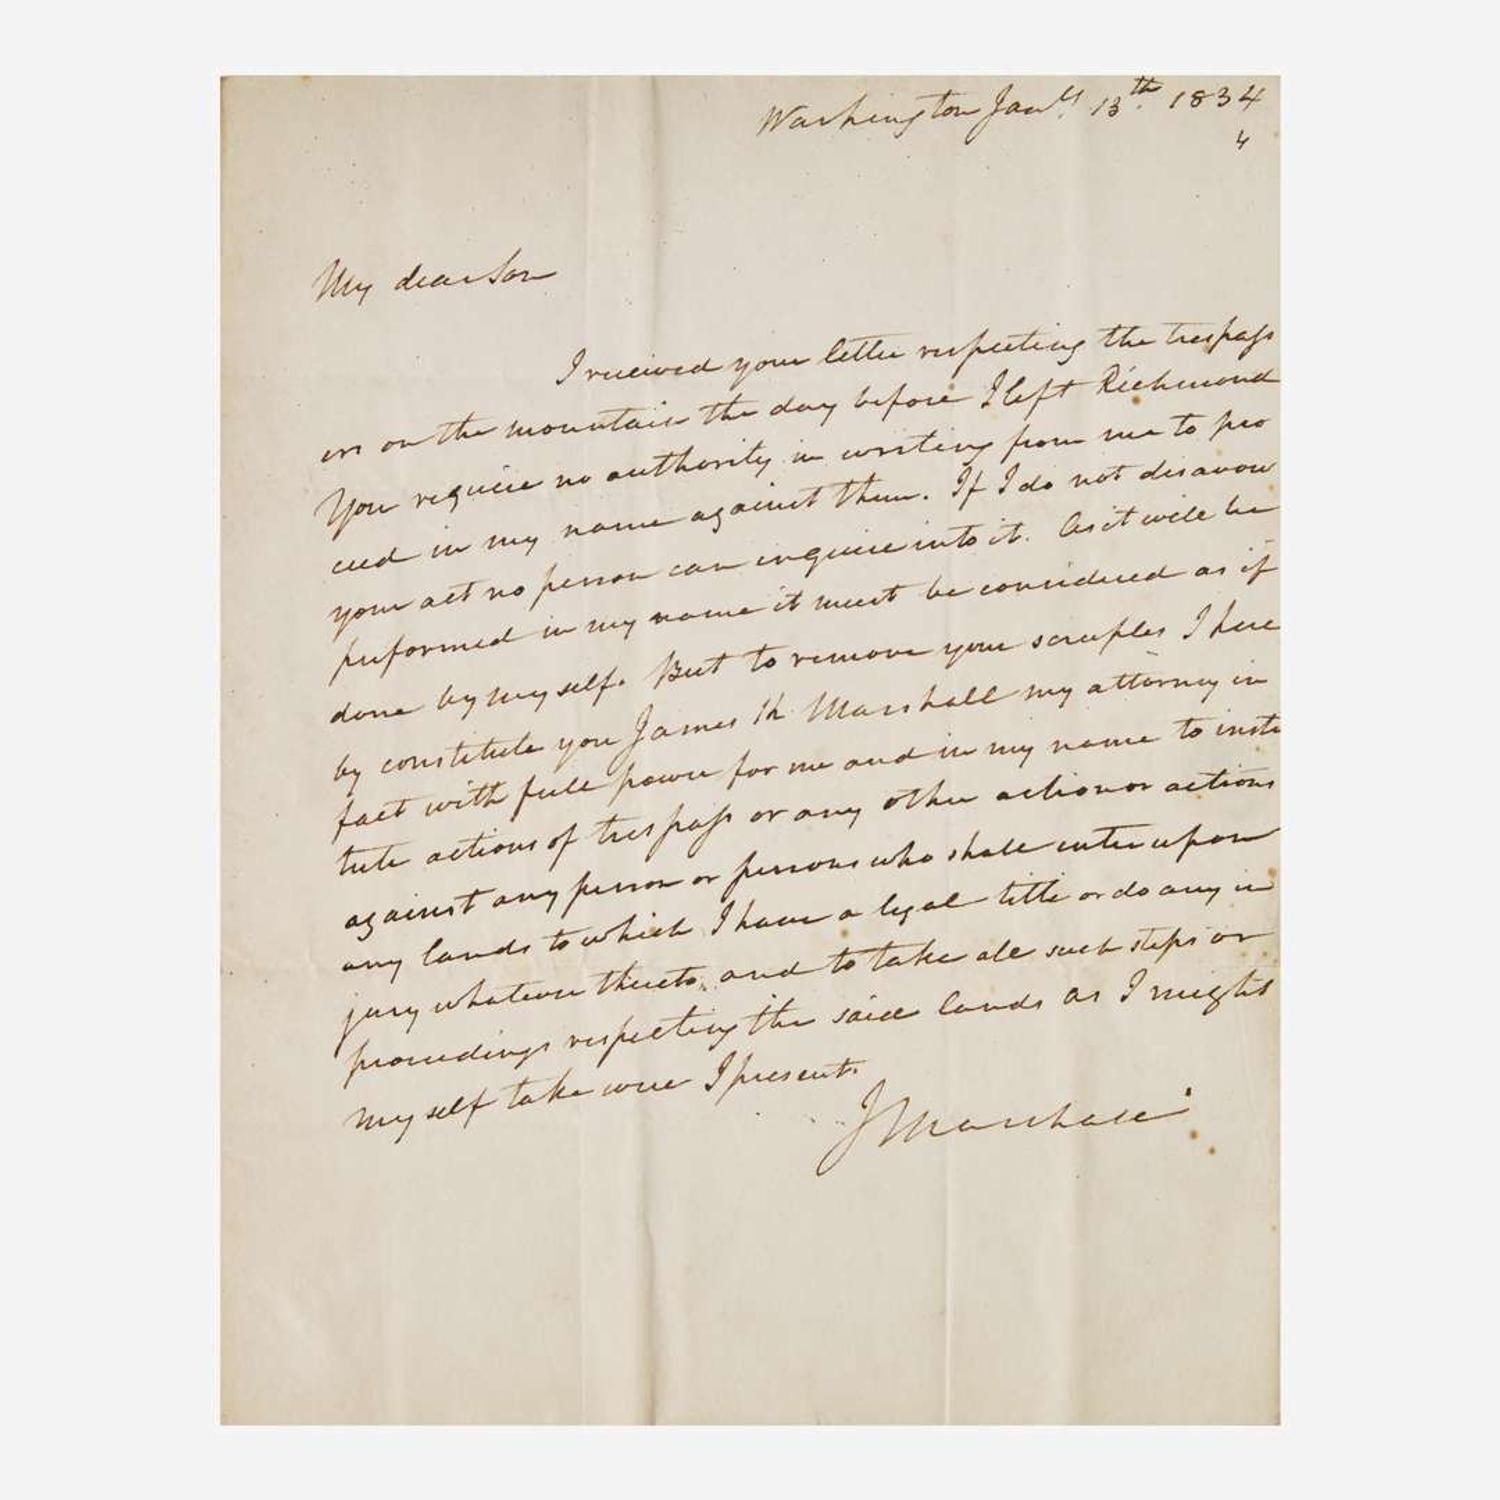 Washington Jany. 13th. 1834
4
My dear Son
I received your letter respecting the trespass
ers on the mountain the day before I left Richmond
You require no authority in writing from me to pro
ceed in my name against them. If I do not disavow
your act no person can inquire into it. As it will be
performed in my name it must be considered as if
done by myself. But to remove your scruples I here
by constitute you James K Marshall my attorney in
fact with full power for me and in my name to insti
tute actions of trespass or any other action or actions
against any person or persons who shall enter upon
any lands to which I have a legal title or do any in
jury whatever thereto, and to take all such steps or
proceedings respecting the said lands as I might
myself take were I present.
J Marshall